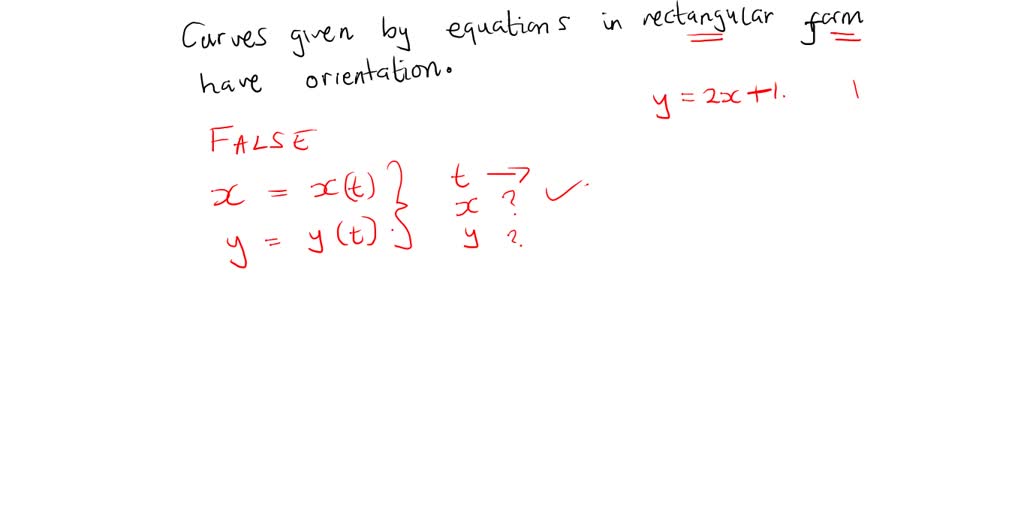 Curves given by equations in rectangular form
have orientation.
y = 2x + 1. 1
FALSE
x = x(t) } t →
x ? ✓
y = y(t) y ?